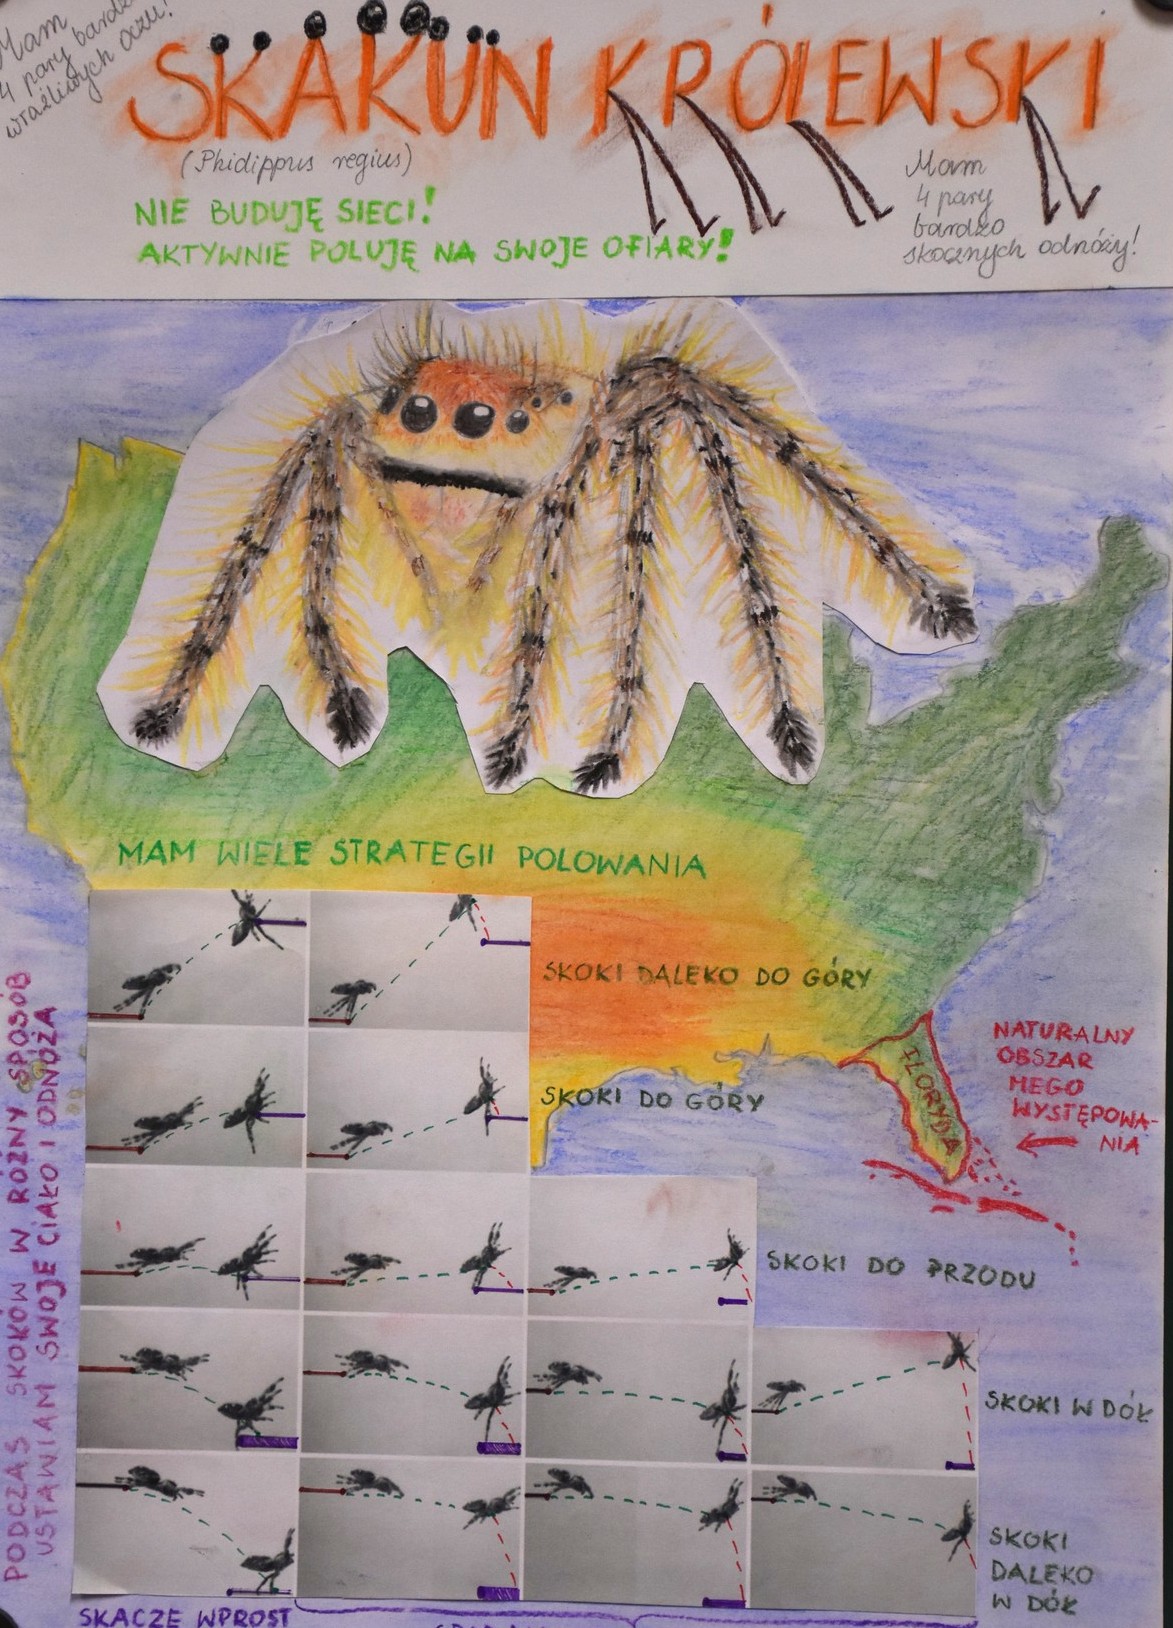 Mam
4 pary bardzo
wrażliwych oczu!
SKAKUN KRÓLEWSKI
(Phidippus regius)
NIE BUDUJĘ SIECI!
AKTYWNIE POLUJĘ NA SWOJE OFIARY!
Mam
4 pary
bardzo
skocznych odnóży!
MAM WIELE STRATEGII POLOWANIA
SKOKI DALEKO DO GÓRY
SKOKI DO GÓRY
SKOKI DO PRZODU
SKOKI W DÓŁ
SKOKI
DALEKO
W DÓŁ
FLORYDA
NATURALNY
OBSZAR
MEGO
WYSTĘPOWA-
NIA
PODCZAS SKOKÓW W RÓŻNY SPOSÓB
USTAWIAM SWOJE CIAŁO I ODNÓŻA
SKACZE WPROST